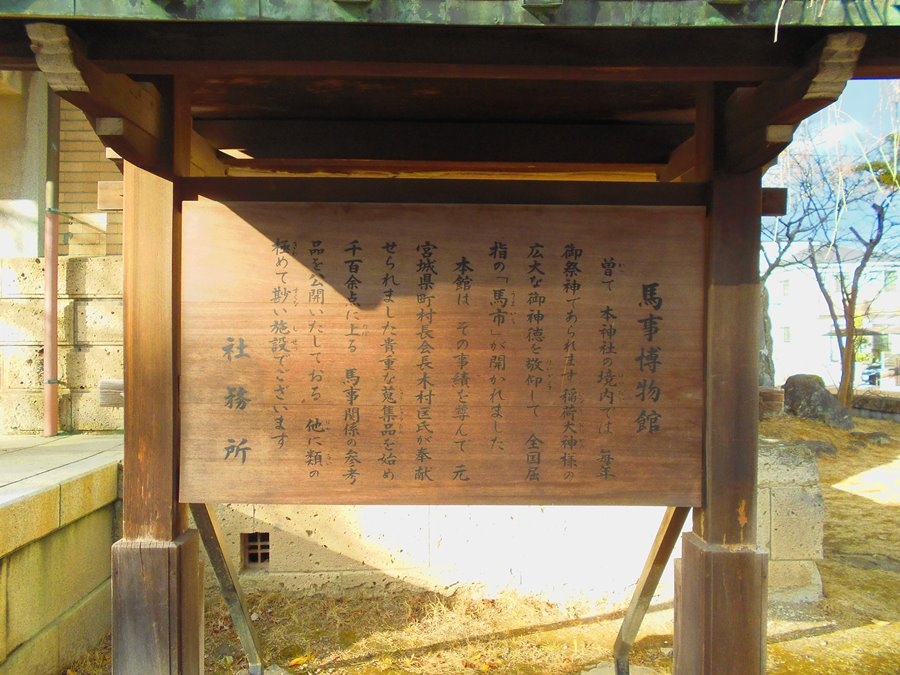 馬事博物館
曽て 本神社の境内では 毎年
御祭神であられます 稲荷大神様の
広大な御神徳を敬仰して 全国屈
指の「馬市」が開かれました
本館は その事績を尊んで 元
宮城県町村長会長木村匡氏が奉献
せられました貴重な蒐集品を始め
千百余点に上る 馬事関係の参考
品を公開いたしておる 他に類の
極めて尠い施設でございます
社務所